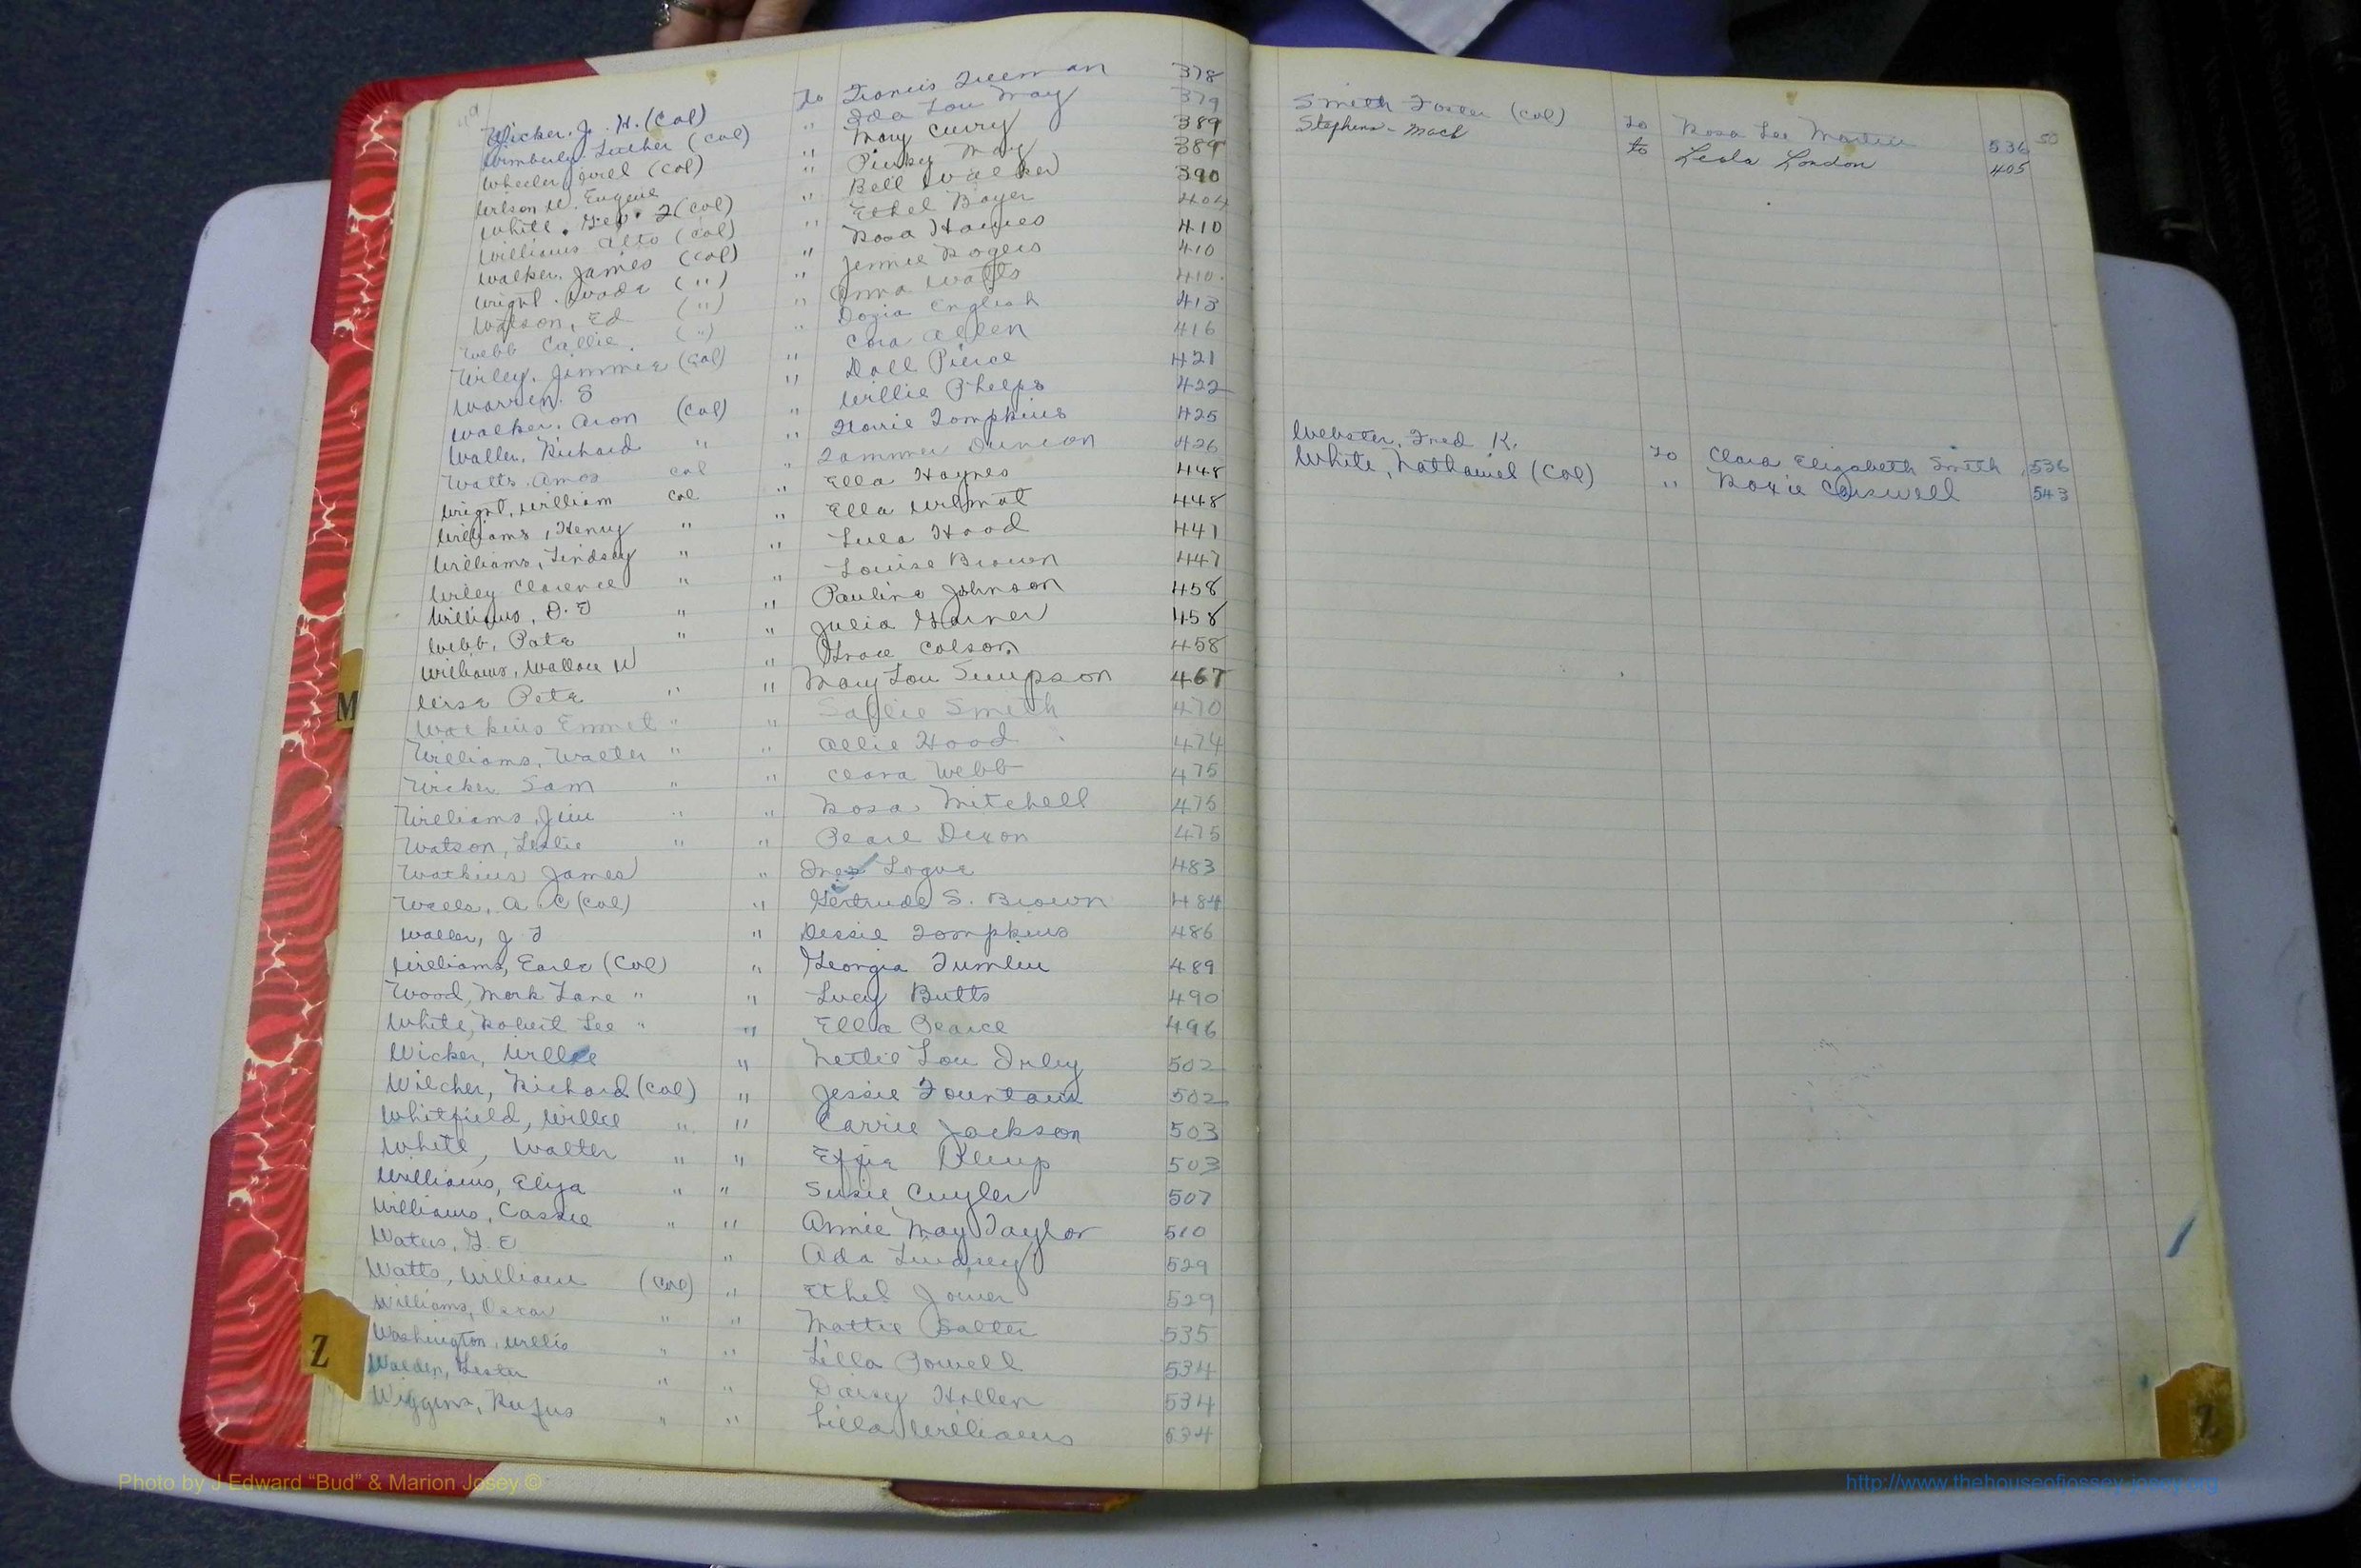 49
Wicker. J. H. (Col) To Francis Freeman 378
Wimberly. Luther (Col) " Ida Lou May 379
Wheeler, (Col) " Mary Curry 389
Wilson W. Eugene " Pinky May 389
White. Geo. F (Col) " Bell Walker 390
Williams Alto (Col) " Ethel Boyer 404
Walker. James (Col) " Rosa Haynes 410
Wright. Wade (") " Jennie Rogers 410
Watson, Ed (") " Anna Watts 410.
Webb Callie. (") " Dozia English 413
Wiley. Jimmie (Col) " Cora Allen 416
Warren. S " Doll Pierce 421
Walker. Aron (Col) " Willie Phelps 422
Waller. Richard " " Tompkins 425
Watts. Amos Col " Duncan 426
Wright, William Col " Ella Haynes 448
Williams, Henry " " Ella Wilmot 448
Williams, Lindsey " " Lula Hood 441
Wiley Clarence " " Louise Brown 447
Williams, D. " " Pauline Johnson 458
Webb, Pate " " Julia Garner 458
Williams, Wallace W " Grace Colson 458
Wise Pete " " Mary Lou Simpson 467
Watkins Emmet " " Sallie Smith 470
Williams, Walter " " Allie Hood 474
Wicker Sam " " Clara Webb 475
Williams, Jim " " Rosa Mitchell 475
Watson, Leslie " " Pearl Dixon 475
Watkins James " Inez Logue 483
Wells, A. C (Col) " Gertrude S. Brown 484
Waller, J T " Dessie Tompkins 486
Williams, Earle (Col) " Georgia Tumlin 489
Wood, Mark Lane " " Lucy Butts 490
White, Robert Lee " " Ella Pearce 496
Wicker, Willie " Nettie Lou Irby 502
Wilcher, Richard (Col) " Jessie Fountain 502
Whitfield, Willie " " Carrie Jackson 503
White, Walter " " Effie 503
Williams, Eliza " " Susie Cuyler 507
Williams, Cassie " " Annie May Taylor 510
Waters, " Ada Lindsey 529
Watts, William (Col) " Ethel Joiner 529
Williams, Oscar " " Mattie Salter 535
Washington, Willis " " Lilla Powell 534
Walden, Lester " " Daisy Hollen 534
Wiggins, Rufus " " Lilla Williams 534
50
Smith Foster (Col) To Rosa Lee Martin 536
Stephens - Mack to Leola London 405
Webster, Fred K. To Clara Elizabeth Smith 536
White, Nathaniel (Col) " Roxie Carswell 543
M
Z
Z
Photo by J Edward “Bud” & Marion Josey ©
http://www.thehouseofjossey-josey.org